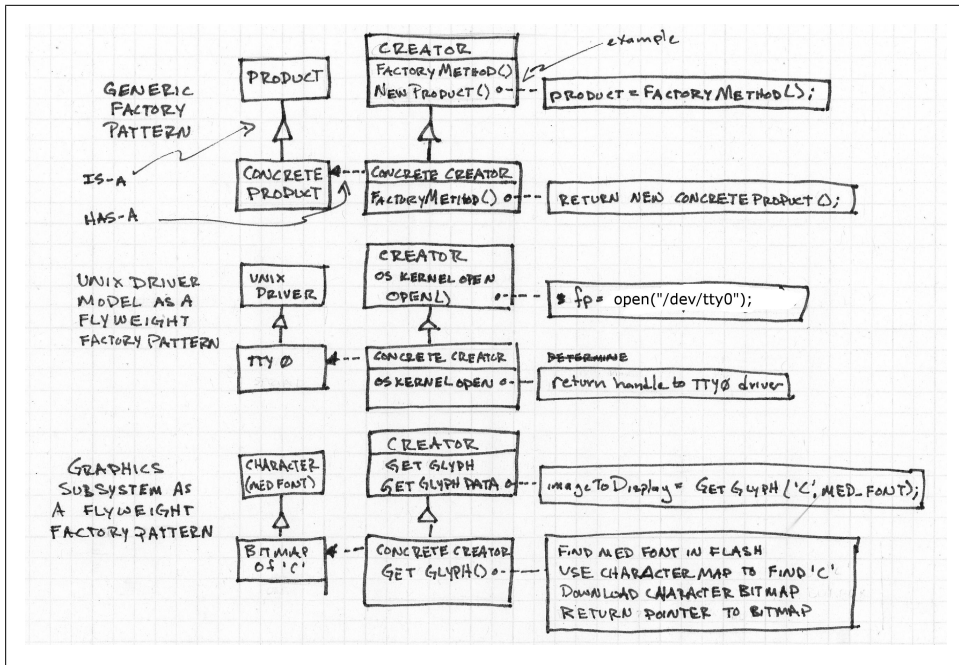 GENERIC
FACTORY
PATTERN
PRODUCT
CREATOR
FACTORYMETHOD()
NEWPRODUCT()
example
PRODUCT = FACTORYMETHOD();
IS-A
HAS-A
CONCRETE
PRODUCT
CONCRETE CREATOR
FACTORYMETHOD()
RETURN NEW CONCRETEPRODUCT();
UNIX DRIVER
MODEL AS A
FLYWEIGHT
FACTORY PATTERN
UNIX
DRIVER
CREATOR
OS KERNEL OPEN
OPEN()
fp = open("/dev/tty0");
TTY 0
CONCRETE CREATOR
OS KERNEL OPEN
DETERMINE
return handle to TTY0 driver
GRAPHICS
SUBSYSTEM AS
A FLYWEIGHT
FACTORY PATTERN
CHARACTER
(MED FONT)
CREATOR
GET GLYPH
GET GLYPH DATA
imageToDisplay = GETGLYPH('C', MED_FONT);
BITMAP
of 'C'
CONCRETE CREATOR
GET GLYPH()
FIND MED FONT IN FLASH
USE CHARACTER MAP TO FIND 'C'
DOWNLOAD CHARACTER BITMAP
RETURN POINTER TO BITMAP